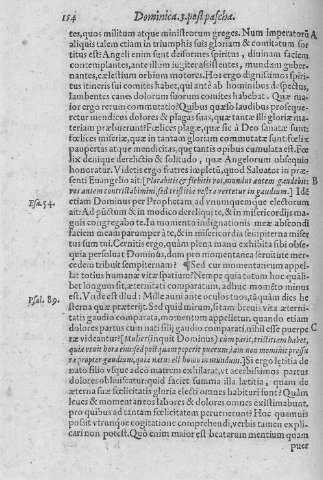 154 Dominica.3.post pascha.
tes, quos militum atque ministrorum greges. Num Imperatorū A
aliquis talem etiam in triumphis suis gloriam & comitatum sor
titus est? Angeli enim sunt deiformes spiritus, diuinam faciem
contemplantes, ante illum iugiter assistentes, mundum guber-
nantes, cælestium orbium motores. Hos ergo dignissimos spiri-
tus itineris sui comites habet, qui antè ab hominibus despectus,
lambentes canes dolorum suorum comites habebat. Quæ ma-
ior ergo rerum commutatio? Quibus quæso laudibus proseque-
retur mendicus dolores & plagas suas, quæ tantæ illi gloriæ ma-
teriam præbuerunt? Fœlices plagæ, quæ sic à Deo sanatæ sunt:
fœlices miseriæ, quæ in tantam gloriam commutatæ sunt: fœlix
paupertas atque mendicitas, quæ tantis opibus cumulata est. Fœ
lix denique derelictio & solitudo, quæ Angelorum obsequio
honoratur. Videtis ergo fratres impletū, quod Saluator in præ-
senti Euangelio ait: [Plorabitis & flebitis vos, mundus autem gaudebit: B
vos autem contristabimini, sed tristitia vestra vertetur in gaudium.] Id
Esa. 54. etiam Dominus per Prophetam ad vnumquemque electorum
ait: Ad punctum & in modico dereliqui te, & in misericordijs ma-
gnis congregabo te. In momento indignationis meæ abscondi
faciem meam parumper à te, & in misericordia sempiterna miser
tus sum tui. Cernitis ergo, quàm plena manu exhibita sibi obse-
quia persoluat Dominus, dum pro momentanea seruitute mer-
cedem tribuit sempiternam? ¶ Sed cur momentaneum appel-
lat totius humanæ vitæ spatium? Nempe quia totum hoc quali-
bet longum sit, æternitati comparatum, adhuc momēto minus
Psal. 89. est. Vnde est illud: Mille anni ante oculos tuos, tāquàm dies he
sterna quæ præterijt. Sed quid mirum, si tam breuis vitæ æterni-
tatis gaudio comparata, momentum appelletur, quando etiam
dolores partus cum nati filij gaudio comparati, nihil esse puerpe C
ræ videantur? [Mulier (inquit Dominus) cùm parit, tristitiam habet,
quia venit hora eius: sed post quàm peperit puerum, iam non meminit pressu
ræ propter gaudium, quia natus est homo in mundum.] Si ergo lætitia de
nato filio vsque adeò matrem exhilarat, vt acerbissimos partus
dolores obliuiscatur: quid faciet summa illa lætitia, quam de
æterna suæ fœlicitatis gloria electi omnes habituri sunt? Quàm
leues & momentaneos labores & dolores omnes existimabunt,
pro quibus ad tantam fœlicitatem peruenerunt? Hoc quamuis
possit vtrunque cogitatione comprehendi, verbis tamen expli-
cari non potest. Quò enim maior est beatarum mentium quàm
puer